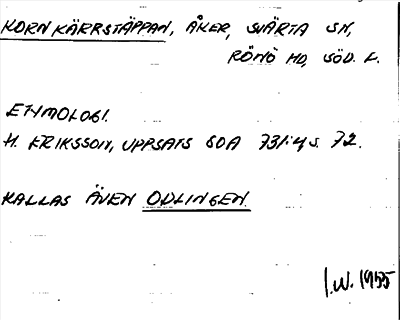 KORNKÄRRSTÄPPAN, ÅKER, SVÄRTA SN,
RÖNÖ HD, SÖD. L.
ETYMOLOGI.
H. ERIKSSON, UPPSATS SOA 731:4 S. 72.
KALLAS ÄVEN ODLINGEN.
I.W. 1955